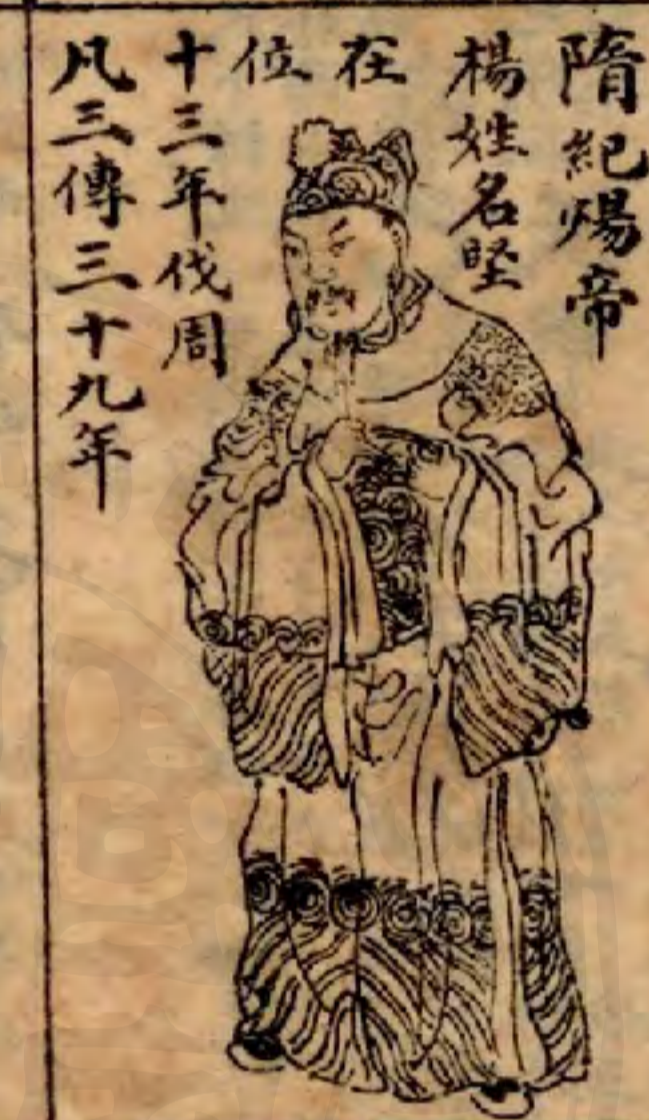 隋紀煬帝
楊姓名堅
在
位
十三年伐周
凡三傳三十九年